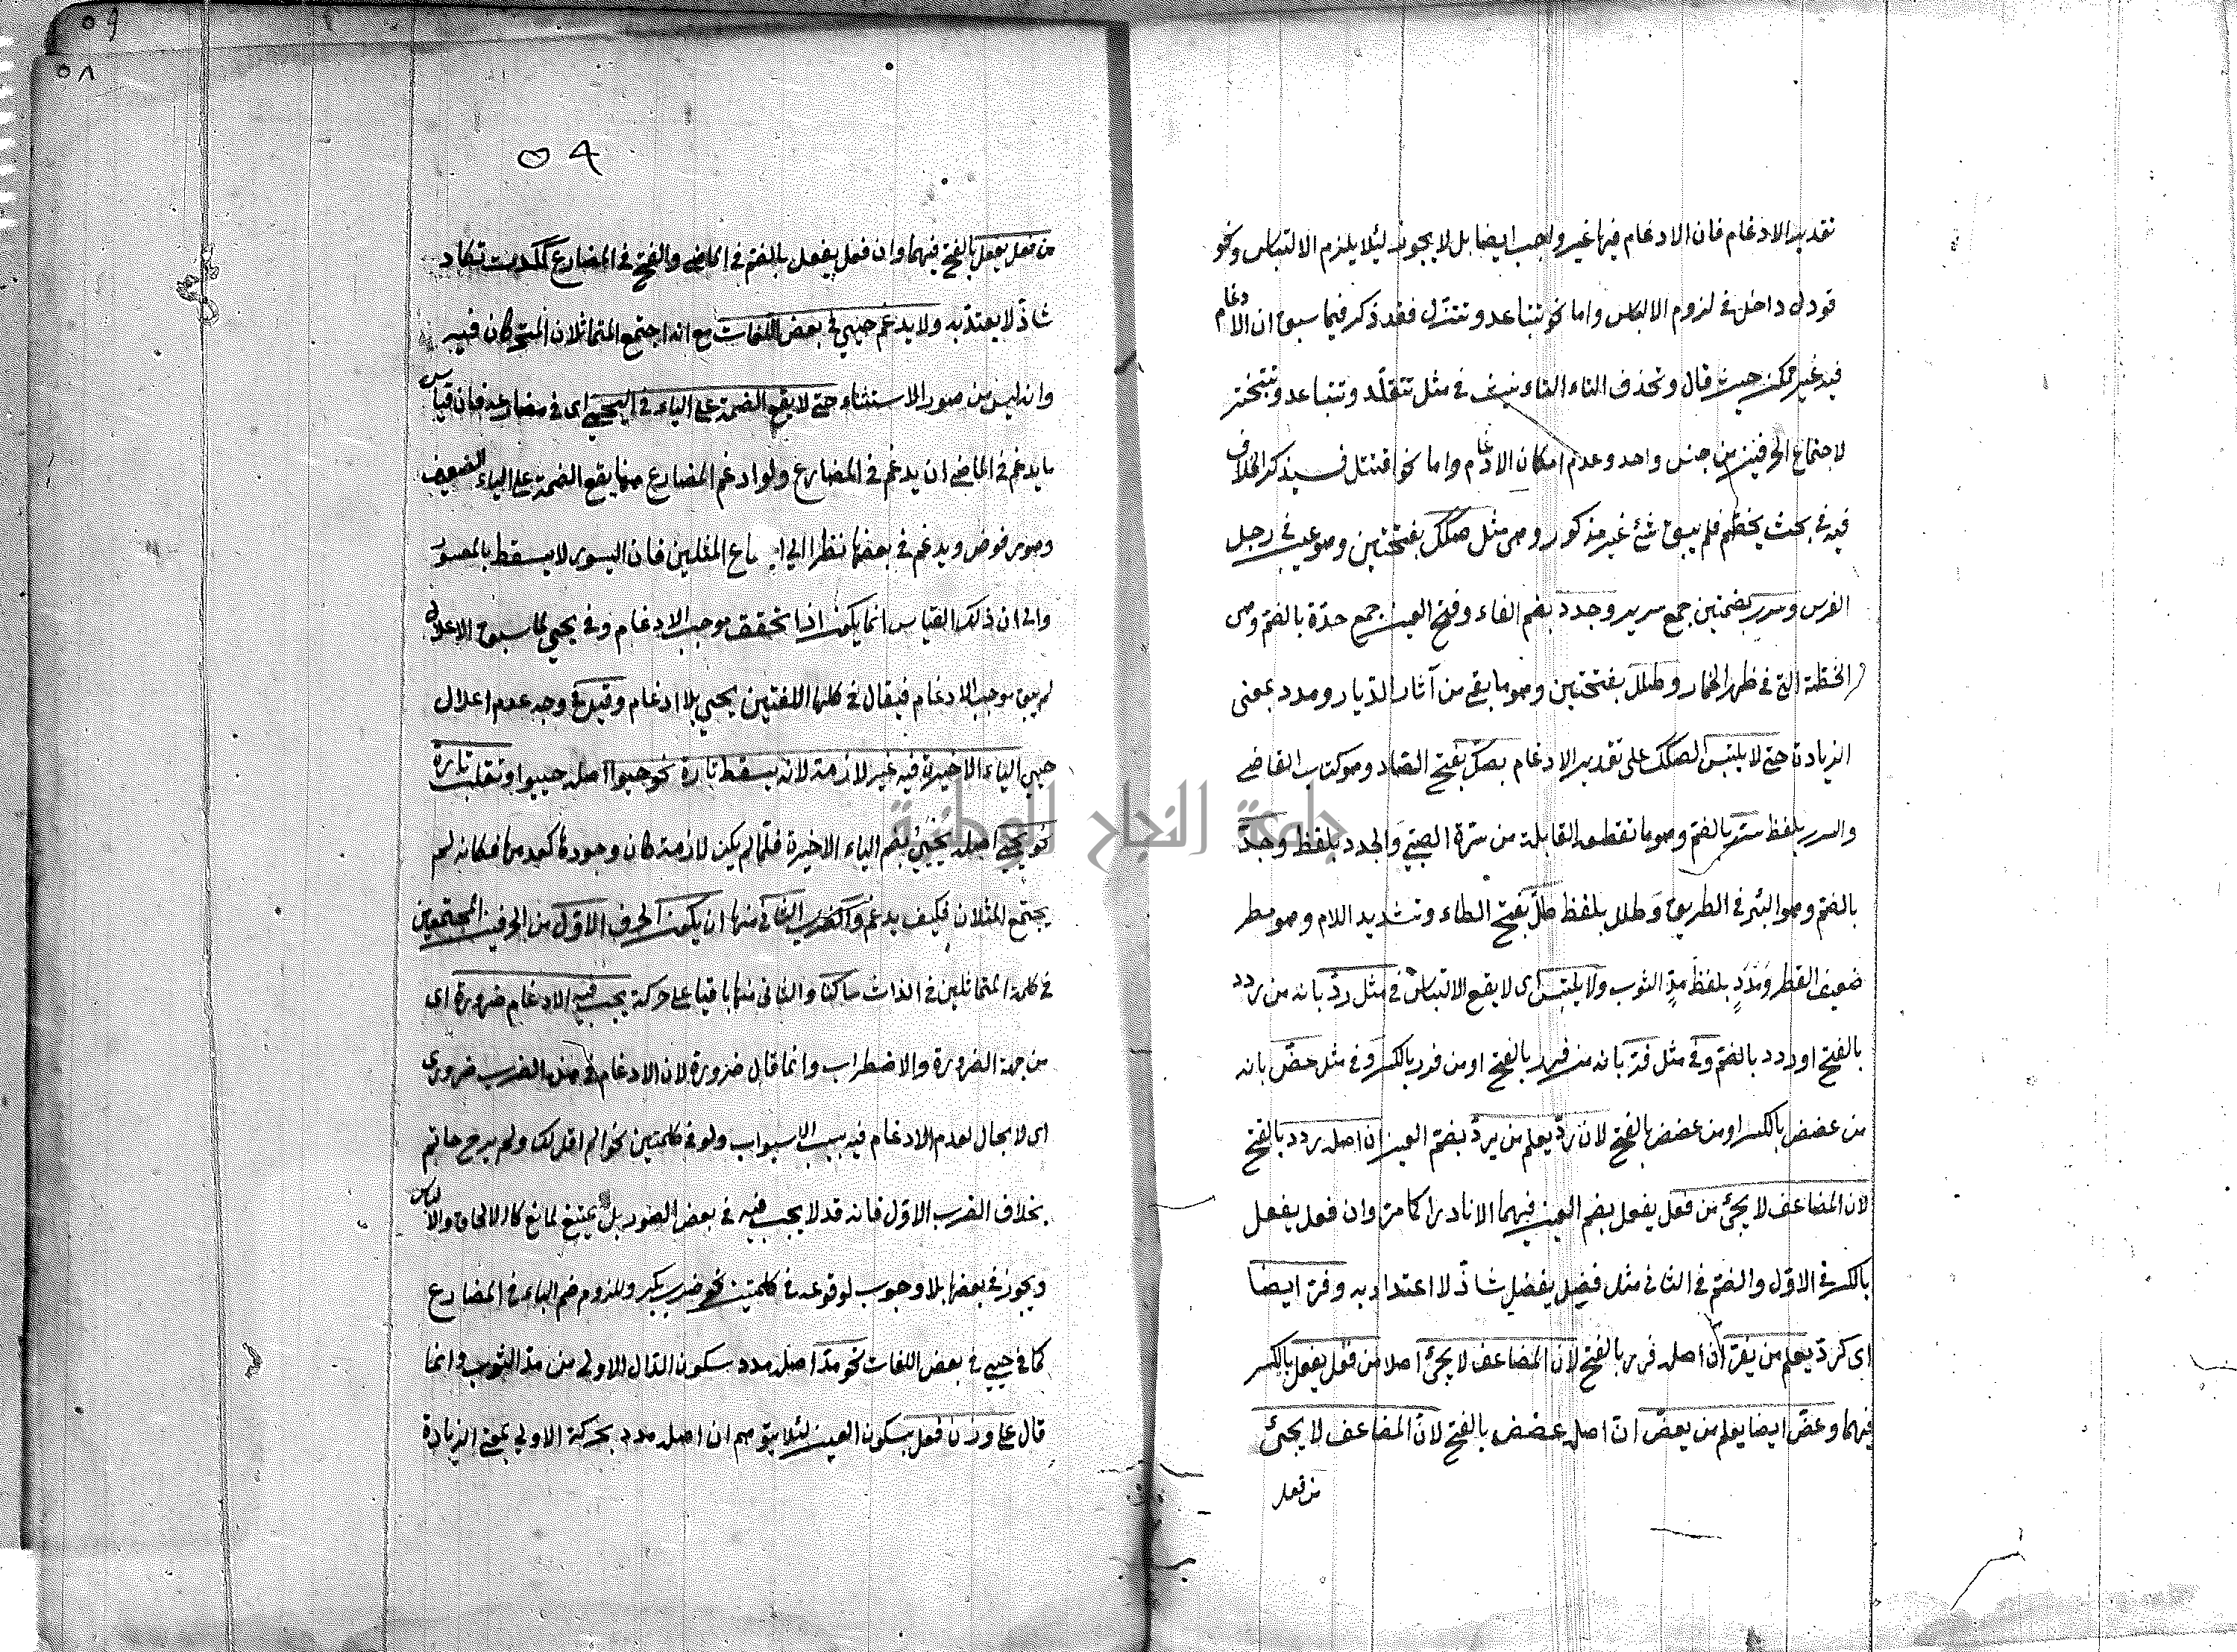 تقدير الادغام فان الادغام فيها غير واجب ايضا بل لا يجوز لئلا يلزم الالتباس ونحو
قودل داخل في لزوم الالباس واما نحو تتباعد وتتنزل فقد ذكر فيما سبق ان الادغام
فيه غير ممكن حيث قال وتحذف التاء الثانية في مثل تتقلد وتتباعد وتتبختر
لاجتماع الحرفين من جنس واحد وعدم امكان الادغام واما نحو اقتتل فسيذكر الخلاف
فيه في بحث يخصّم فلم يبق شئ غير مذكور وهى مثل صكك بفتحتين وهو عيب في رجل
الفرس وسرر بضمتين جمع سرير وجدد بضم الفاء وفتح العين جمع جدّة بالضم وهى
الخطة التي في ظهر الحمار وطلل بفتحتين وهو ما بقي من آثار الديار ومدد بمعنى
الزيادة حتى لا يلتبس الصكك على تقدير الادغام بصكّ بفتح الصاد وهو كتاب القاضي
والسرر بلفظ سرّ بالضم وهو ما تقطعه القابلة من سرّة الصبيّ والجدد بلفظ وجدّ
بالضم وهو البئر في الطريق وطلل بلفظ طلّ بفتح الطاء وتشديد اللام وهو مطر
ضعيف القطر ومَدَدٍ بلفظ مدّ الثوب ولا يلتبس اى لا يقع الالتباس في مثل ردّ بانه من ردد
بالفتح او ردد بالضم وفي مثل فرّ بانه من فرر بالفتح او من فرر بالكسر وفي مثل عضّ بانه
من عضض بالكسر او من عضض بالفتح لان ردّ يعلم من يردّ بضم العين ان اصله ردد بالفتح
لان المضاعف لا يجئ من فعل يفعل بضم العين فيهما الا نادرا كما مر وان فعل يفعل
بالكسر في الاول والضم في الثاني مثل فضل يفضل شاذّ لا اعتداد به وفرّ ايضا
اى كردّ يعلم من يفرّ ان اصله فرر بالفتح لان المضاعف لا يجئ اصلا من فعل يفعل بالكسر
فيهما وعضّ ايضا يعلم من يعضّ ان اصله عضض بالفتح لانّ المضاعف لا يجئ
من فعل
٥٩
٥٨
٥٩
من فعل يفعل بالفتح فيهما وان فعل يفعل بالضم في الماضي والفتح في المضارع ككدت تكاد
شاذّ لا يعتدّ به ولا يدغم حيي في بعض اللغات مع انه اجتمع المتماثلان المتحركان فيه
وانه ليس من صور الاستثناء حتى لا يقع الضمة على الياء في اليحيي اى في مضارعه فان قياس
ما يدغم في الماضي ان يدغم في المضارع ولو ادغم المضارع ههنا يقع الضمة على الياء الضعيف
وهو مرفوض ويدغم في بعضها نظرا الى اجتماع المثلين فان الميسور لا يسقط بالمعسور
والى ان ذلك القياس انما يكون اذا تحقق موجب الادغام وفي يحيي لما سبق الاعلال
لم يبق موجب الادغام فيقال في كلتا اللغتين يحيى بلا ادغام وقيل في وجه عدم اعلال
حيي الياء الاخيرة فيه غير لازمة لانه يسقط تارة نحو حيوا اصله حييوا وتقلب تارة
نحو يحيى اصله يحييُ بضم الياء الاخيرة فلمّا لم يكن لازمة كان وجودها كعدمها فكانه لم
يجتمع المثلان فكيف يدغم والضرب الثاني منها ان يكون الحرف الاوّل من الحرفين المجتمعين
في كلمة المتماثلين في الذات ساكنا والثاني منها باقيا على حركة يجب فيه الادغام ضرورة اى
من جهة الضرورة والاضطراب وانما قال ضرورة لان الادغام في هذا الضرب ضرورى
اى لا مجال لعدم الادغام فيه بسبب الاسباب ولو في كلمتين نحو الم اقل لك ولم يرح حاتم
بخلاف الضرب الاوّل فانه قد لا يجب فيه في بعض الصور بل يمتنع لمانع كالالحاق والالباس
ويجوز في بعضها بلا وجوب لوقوعه في كلمتين نحو ضرب بكر وللزوم ضم الياء في المضارع
كما في حيي في بعض اللغات نحو مدّ اصله مدد بسكون الدال الاولى من مدّ الثوب وانما
قال على وزن فعل بسكون العين لئلا يتوهم ان اصله مدد بحركة الاولى بمعنى الزيادة
جامعة النجاح الوطنية